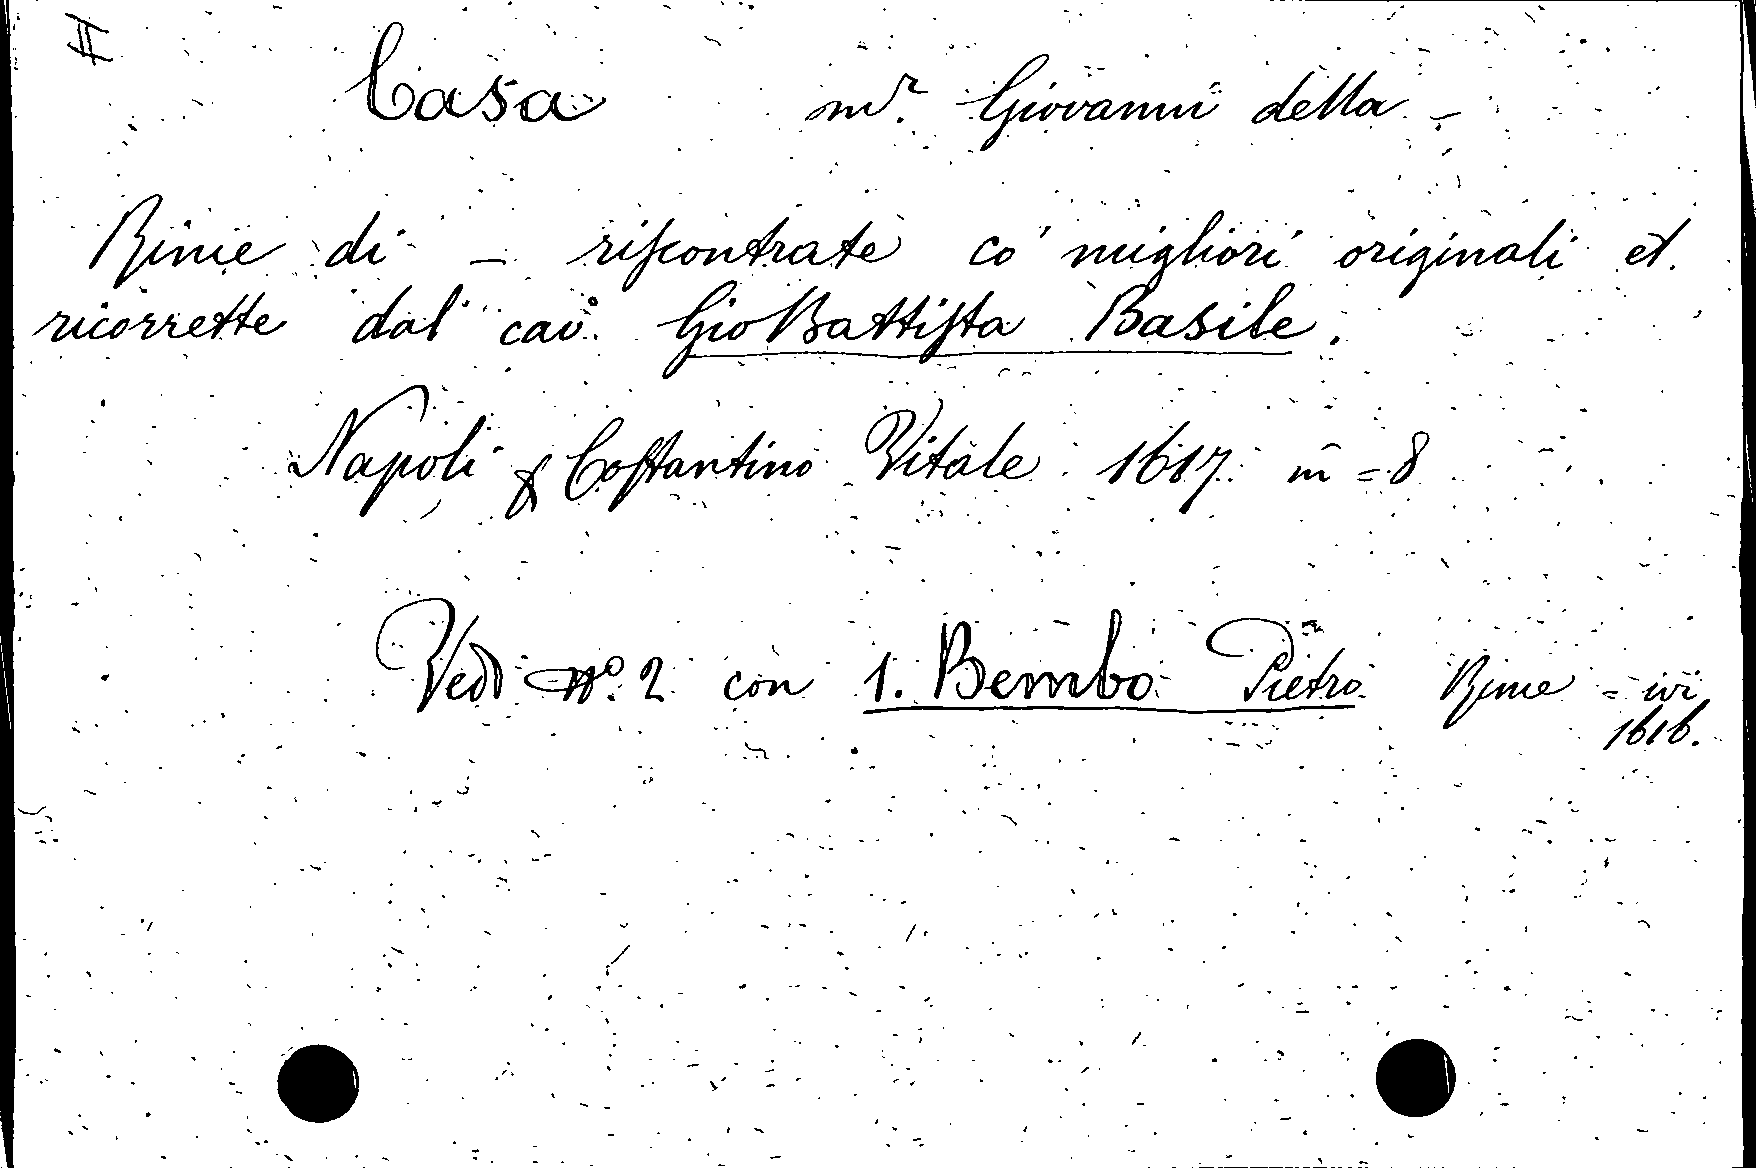 II
Casa m.r Giovanni della -
Rime di - riscontrate co' migliori originali et
ricorrette dal cav. Gio Battista Basile.
Napoli p Costantino Vitale 1617 in = 8
Vedi N.º 2 con 1. Bembo Pietro Rime = ivi
1616.